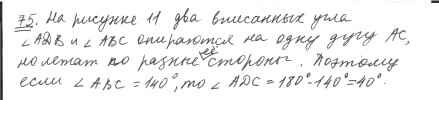 75. На рисунке 11 два вписанных угла
∠ADB и ∠ABC опираются на одну дугу AC,
но лежат по разные её стороны. Поэтому
если ∠ABC = 140°, то ∠ADC = 180°-140°=40°.